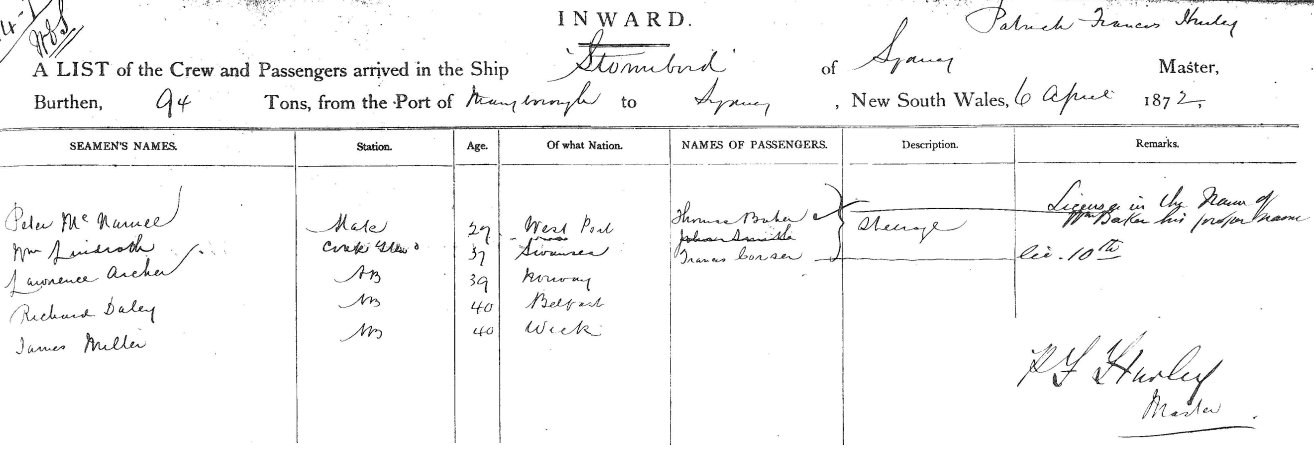 INWARD.
Patrick Francis Hurley
A LIST of the Crew and Passengers arrived in the Ship "Stormbird" of Sydney Master,
Burthen, 94 Tons, from the Port of Maryborough to Sydney, New South Wales, 6 April 1872.
SEAMEN'S NAMES. Station. Age. Of what Nation. NAMES OF PASSENGERS. Description. Remarks.
Peter McNamee Mate 29 West Port Thomas Baker Steerage License in the Name of
Wm Baker his proper name
Wm Lindroth Cook & 37 Swansea Smith
Lawrence Archer AB 39 Norway Francis lic. 10th
Richard Daley AB 40 Belfast
James Miller AB 40 Wick
P F Hurley
Master